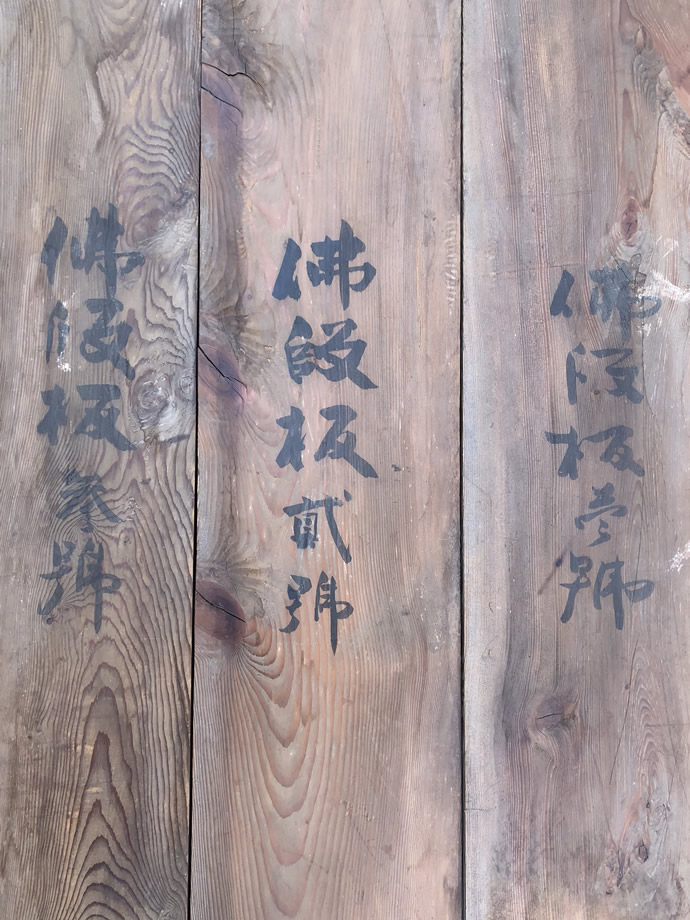 佛段板壹號
佛段板貳號
佛段板叁號